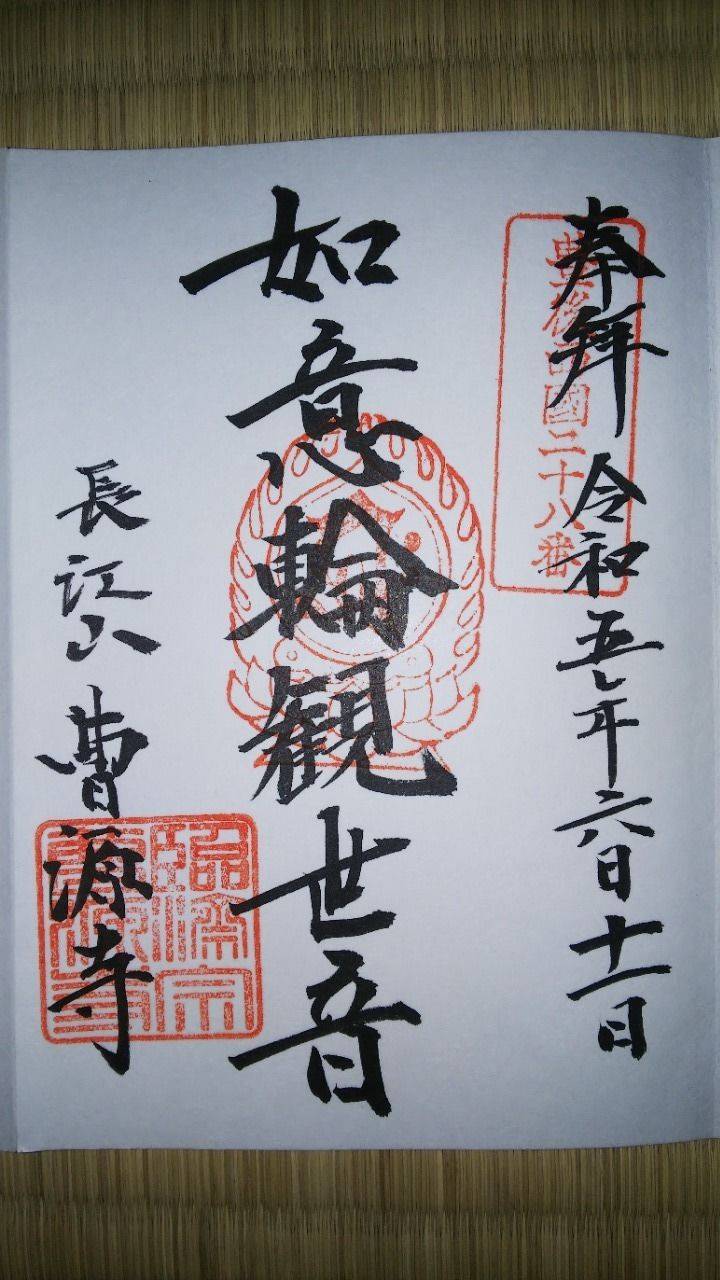 奉拝 令和五年六月十一日
豊後西國二十八番
如意輪観世音
長江山 曹源寺
臨済宗
曹源寺